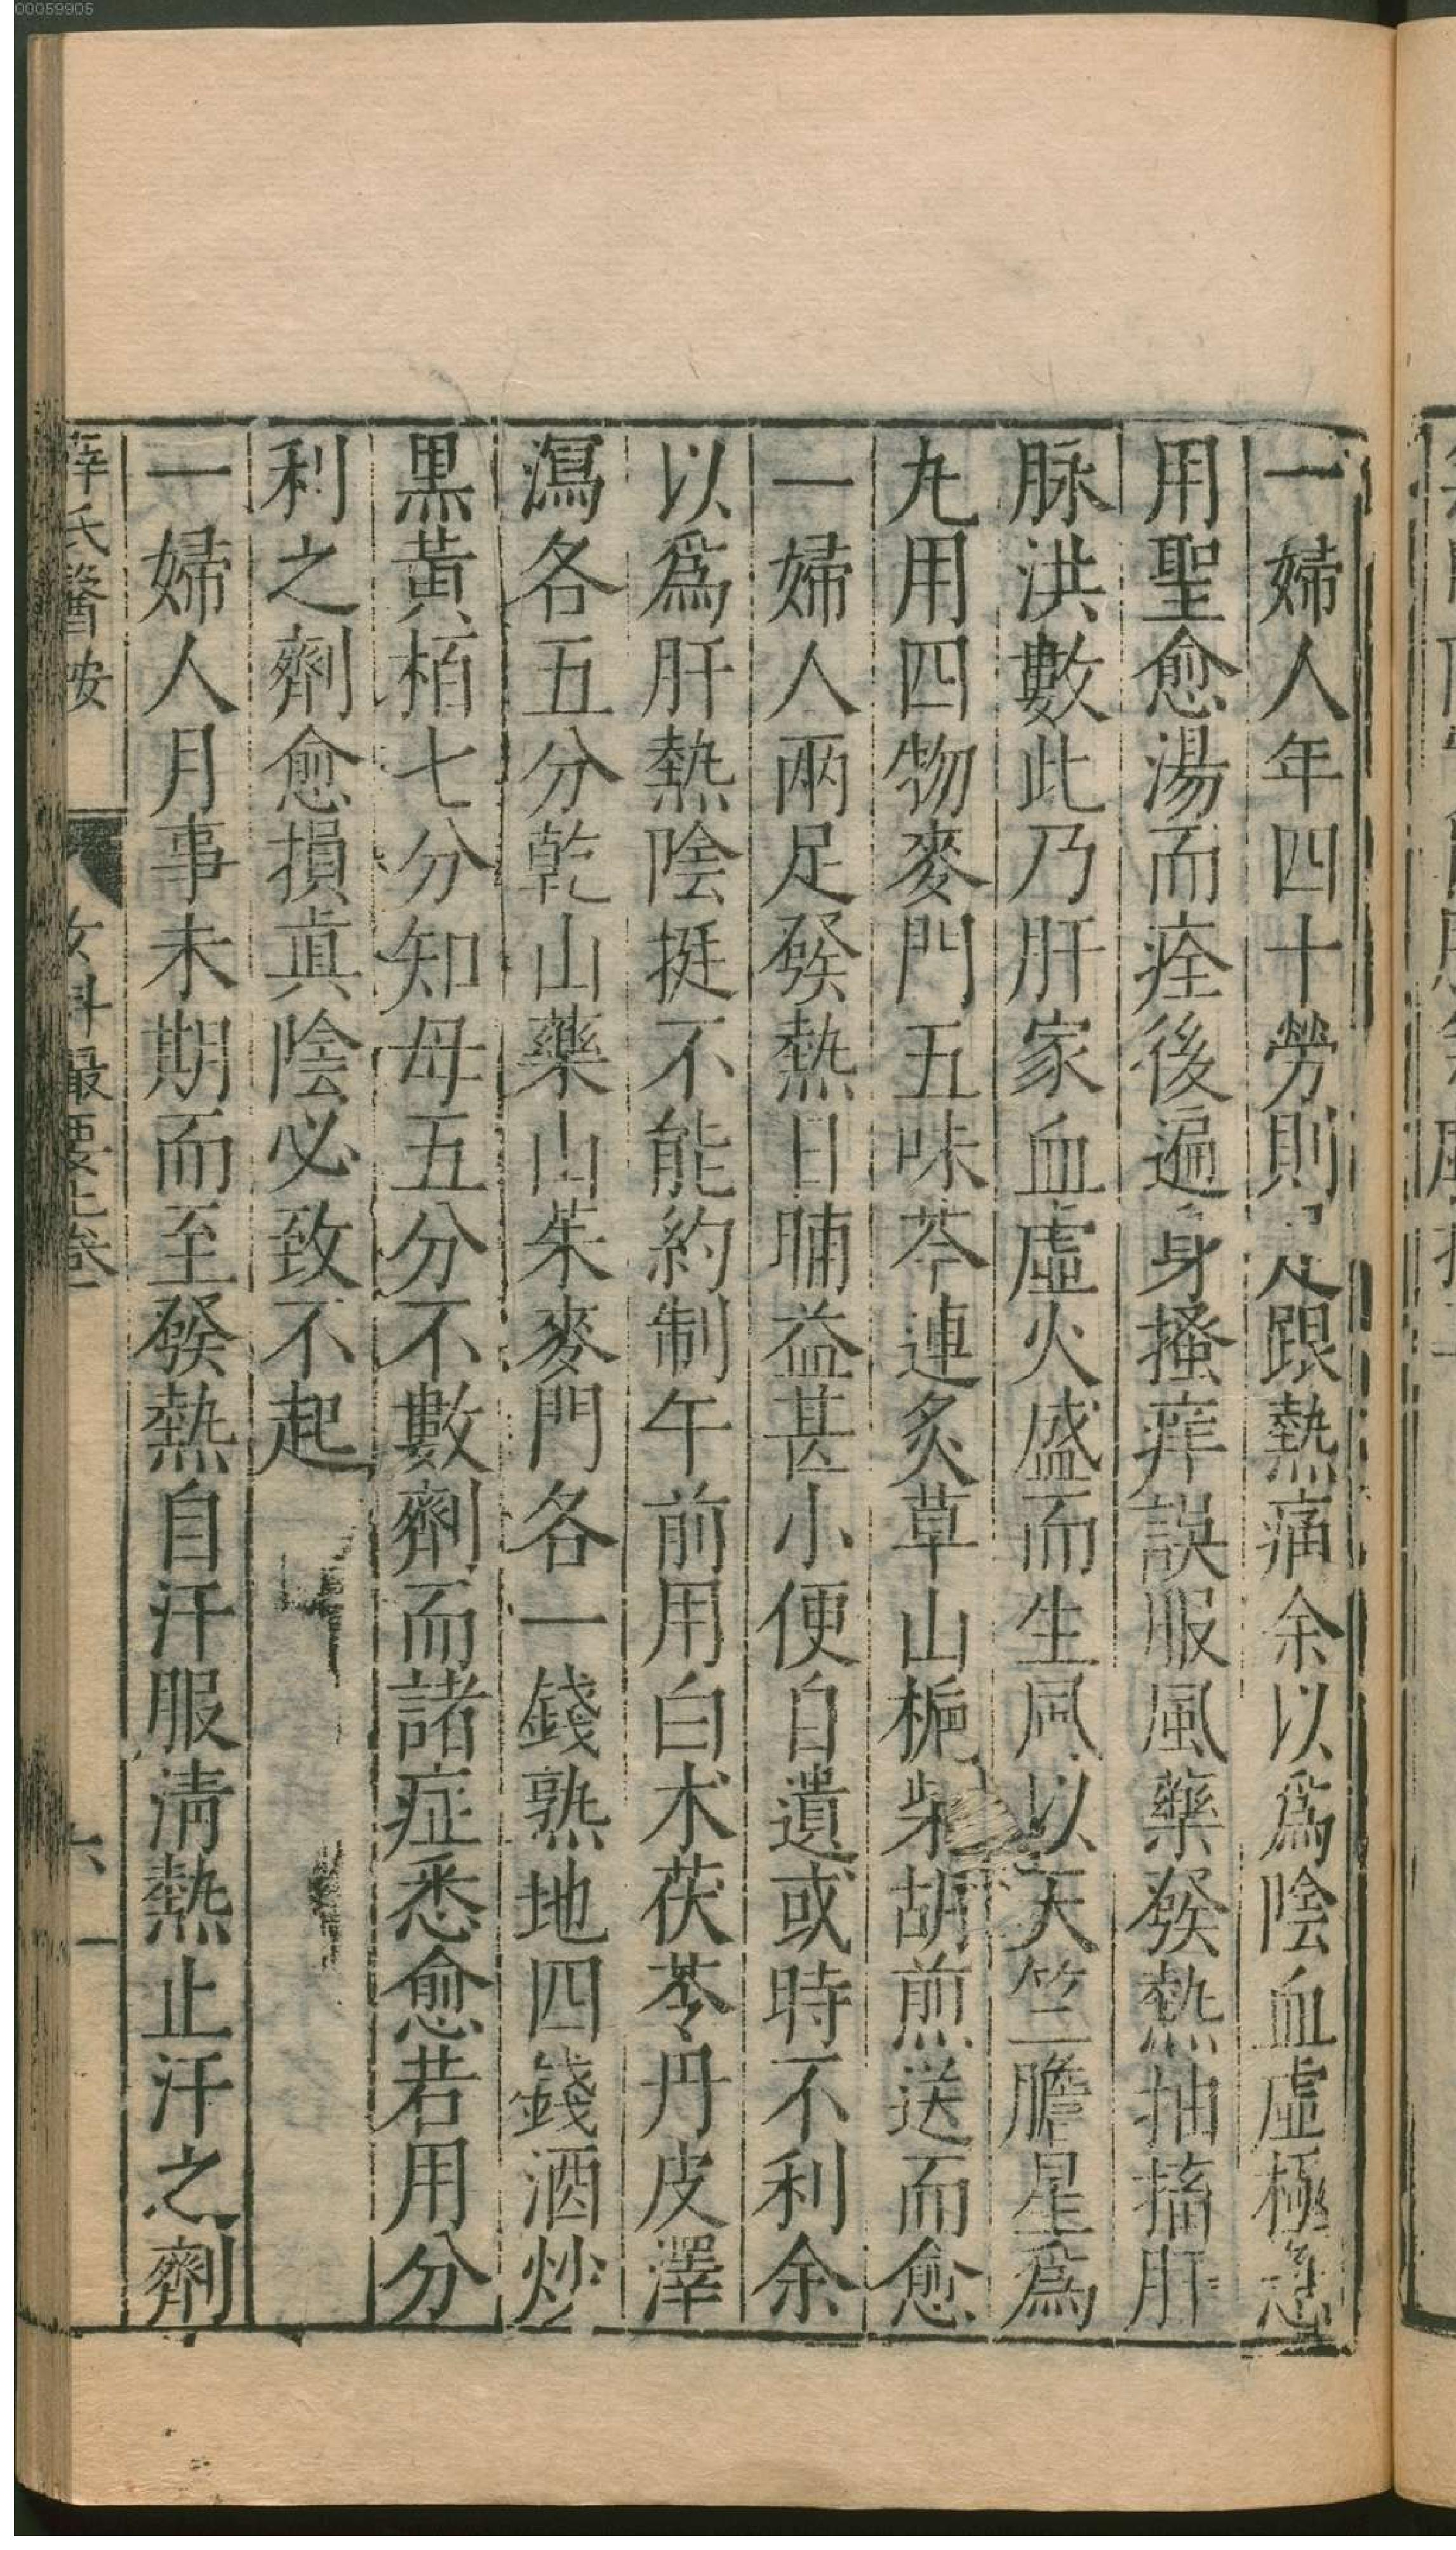 00059905
一婦人年四十勞則足跟熱痛余以爲陰血虛極急
用聖愈湯而痊後遍身搔痒誤服風藥發熱抽搐肝
脉洪數此乃肝家血虛火盛而生風以天竺膽星爲
丸用四物麥門五味芩連炙草山梔柴胡煎送而愈
一婦人兩足發熱日晡益甚小便自遺或時不利余
以爲肝熱陰挺不能約制午前用白朮茯苓丹皮澤
瀉各五分乾山藥山茱麥門各一錢熟地四錢酒炒
黑黃栢七分知母五分不數劑而諸症悉愈若用分
利之劑愈損眞陰必致不起
一婦人月事未期而至發熱自汗服淸熱止汗之劑
薛氏醫按 女科撮要上卷 六